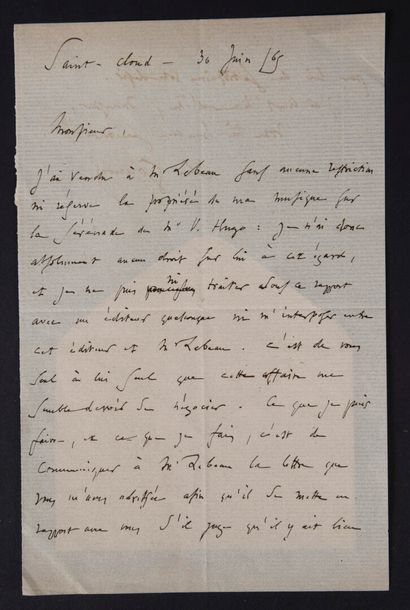 Saint-Cloud - 30 Juin /65
Monsieur,
J'ai vendu à Mr Lebeau sans aucune restriction
ni réserve la propriété de ma musique sur
la Sérénade de Mr V. Hugo : je n'ai donc
absolument aucun droit sur lui à cet égard,
et je ne puis ni traiter sous ce rapport
avec un éditeur quelconque ni m'interposer entre
cet éditeur et Mr Lebeau. C'est de vous
seul à lui seul que cette affaire me
semble devoir se négocier. Ce que je puis
faire, et ce que je fais, c'est de
communiquer à Mr Lebeau la lettre que
vous m'avez adressée afin qu'il se mette en
rapport avec vous s'il juge qu'il y ait lieu